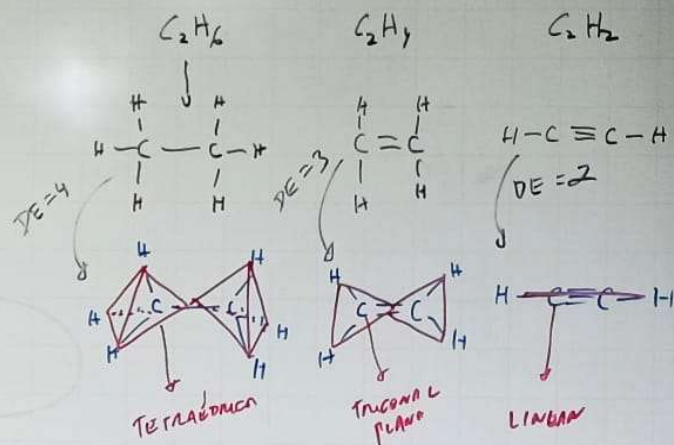 C₂H₆ C₂H₄ C₂H₂
H H H H
H-C-C-H C=C H-C≡C-H
H H H H
DE=4 DE=3 DE=2
H H
H C C H
H H
H H
C=C
H H
H C≡C H
TETRAÉDRICA
TRIGONAL
PLANA
LINEAR